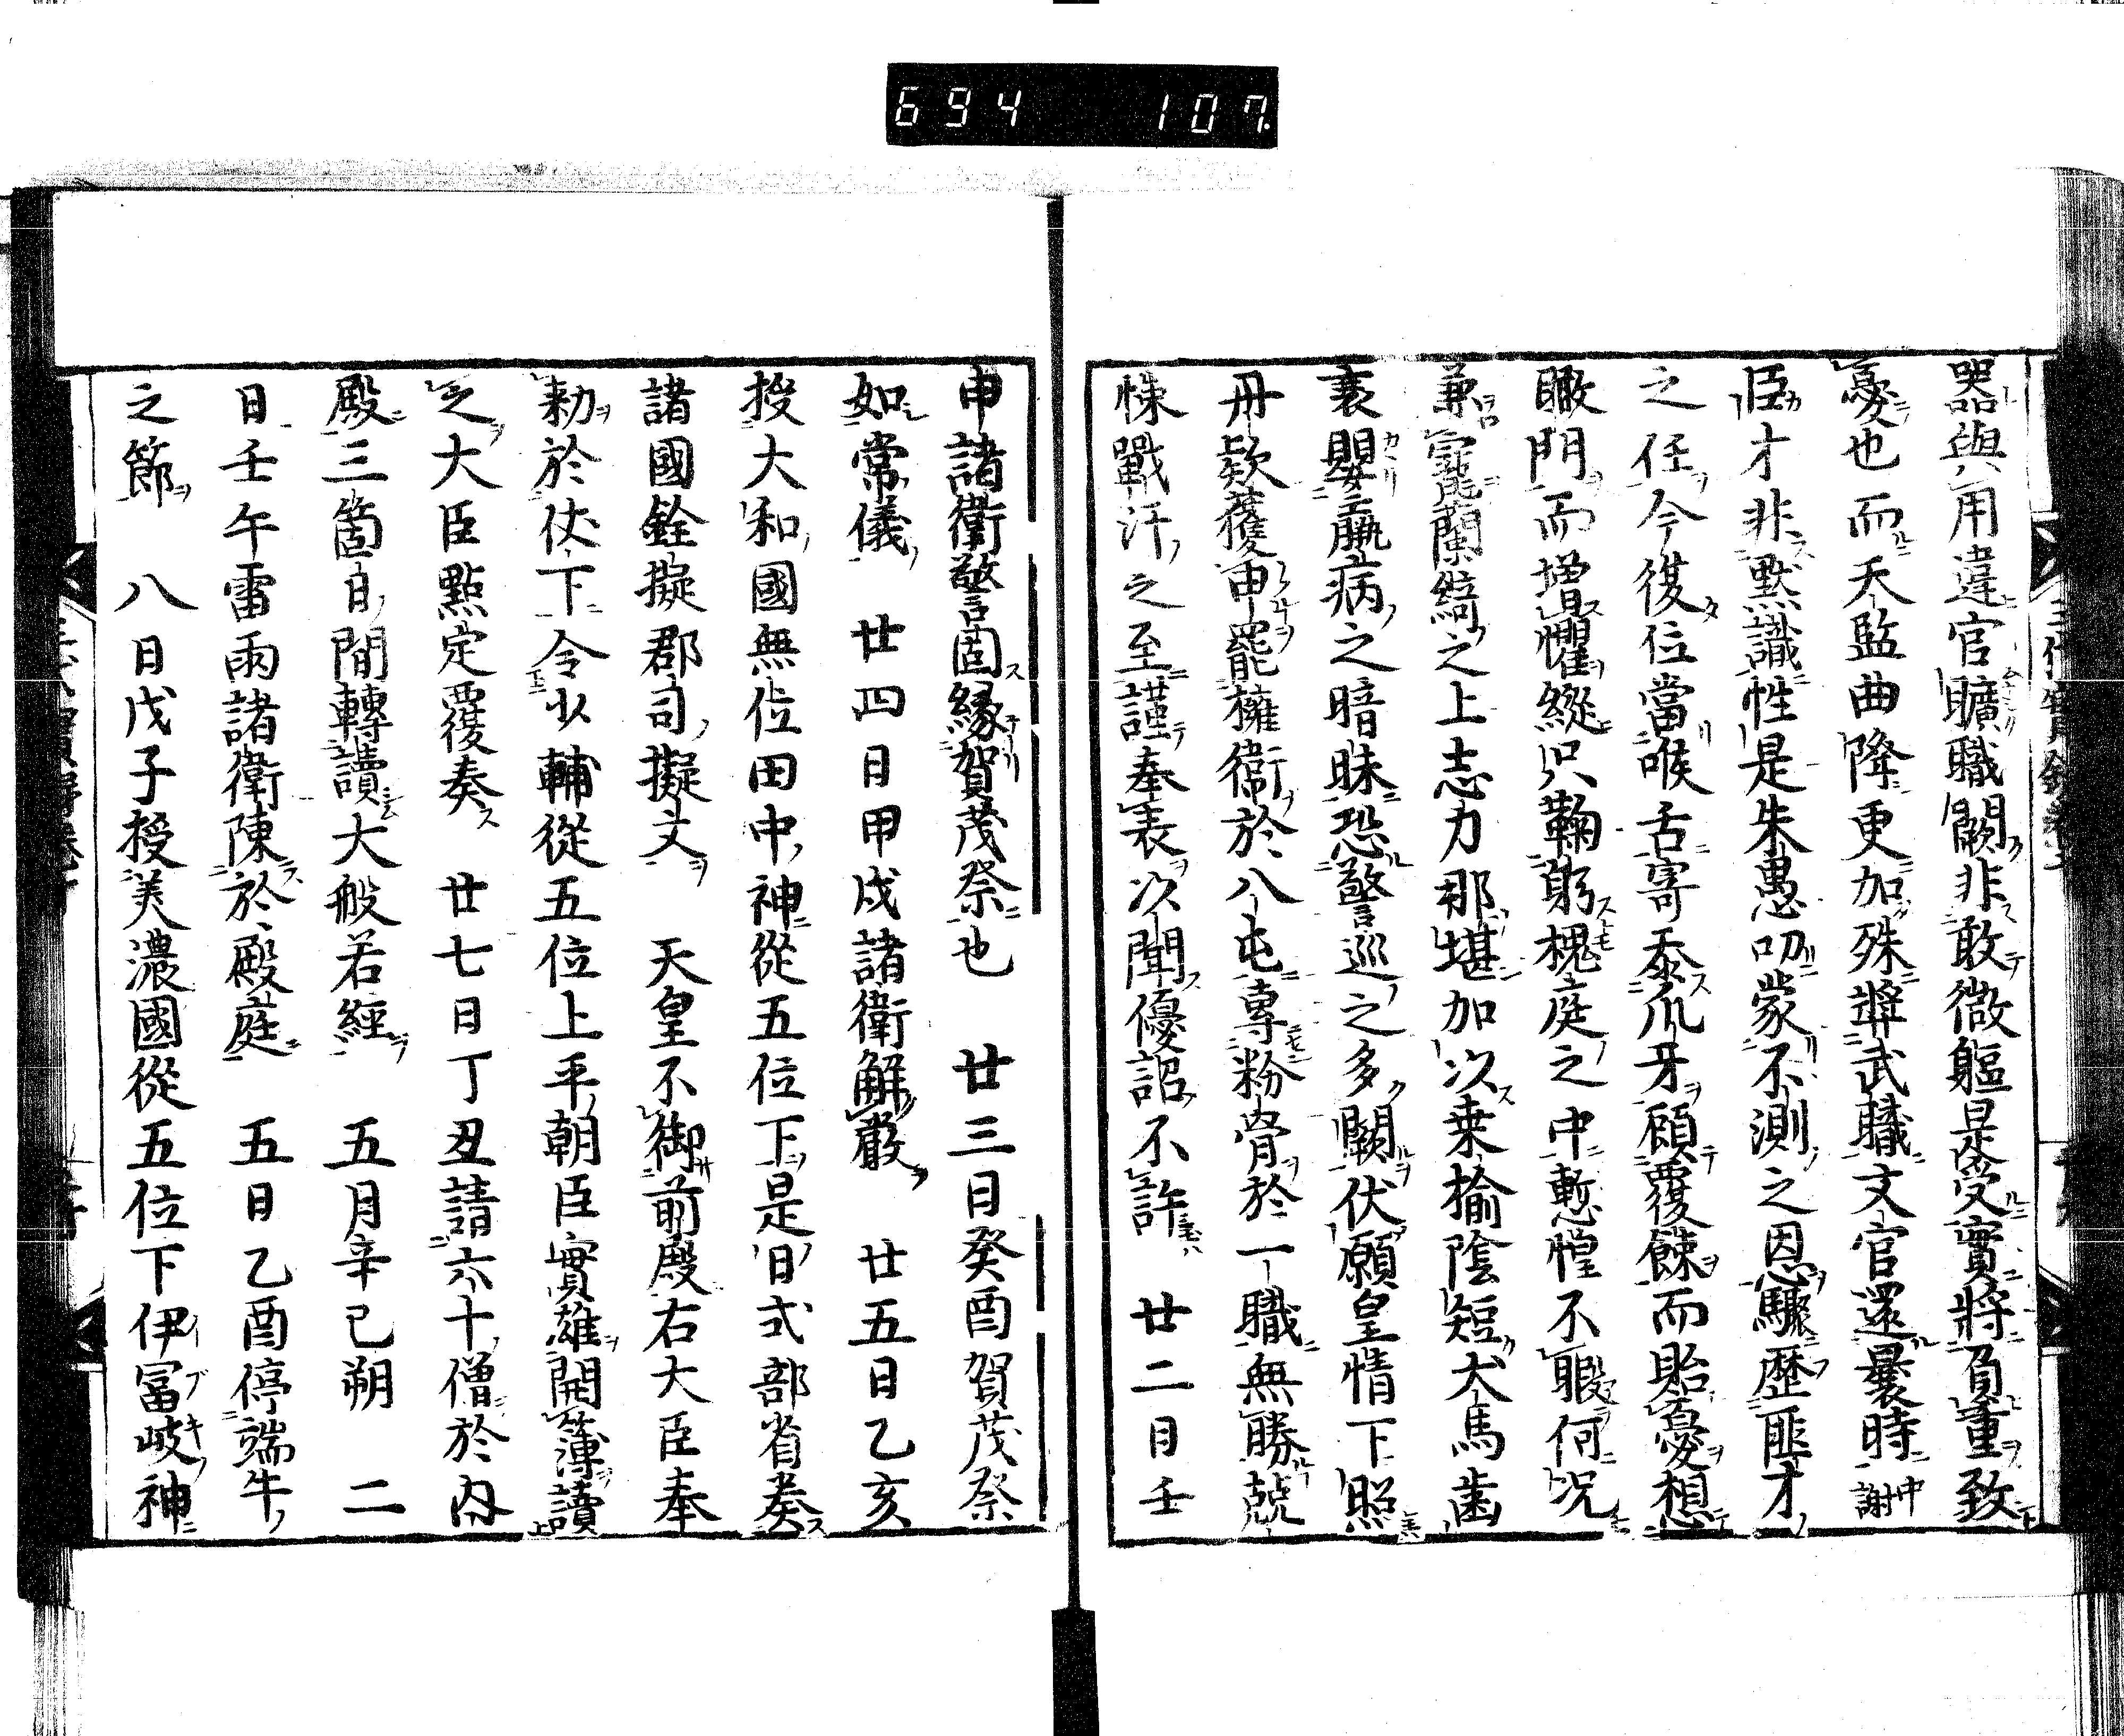 694 107
器與用違官曠職闕非敢微軀是受實將負重致
憂也而天監曲降更加殊奬武職文官還曩時中謝
臣才非默識性是朱愚叨蒙不測之恩驟歷匪才
之任今復位當喉舌寄忝爪牙顧覆餗而貽憂想
瞰門而增懼縱只鞠躬槐庭之中慙惶不暇何況
兼寵蘭綺之上志力那堪加以桒揄陰短犬馬齒
衰嬰羸病之暗昧恐警巡之多闕伏願皇情下照
丹欵獲申罷擁衛於八屯專粉骨於一職無勝兢
悚戰汗之至謹奉表以聞優詔不許 廿二日壬
申諸衛警固緣賀茂祭也 廿三日癸酉賀茂祭
如常儀 廿四日甲戌諸衛解嚴 廿五日乙亥
授大和國無位田中神從五位下是日式部省奏
諸國銓擬郡司擬文 天皇不御前殿右大臣奉
勅於仗下令以輔從五位上平朝臣實雄開簿讀
之大臣點定覆奏 廿七日丁丑請六十僧於內
殿三箇日間轉讀大般若經 五月辛巳朔 二
日壬午雷雨諸衛陳於殿庭 五日乙酉停端午
之節 八日戊子授美濃國從五位下伊冨岐神